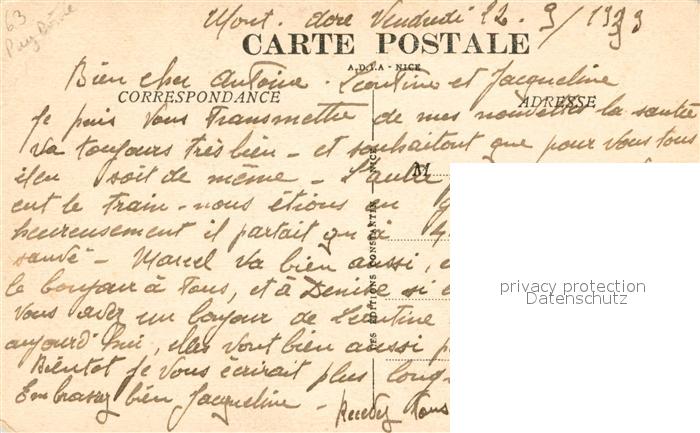 63
Puy Dôme
Mont. dore Vendredi 22. 9/1933
CARTE POSTALE
A.D.I.A - NICE
Bien cher Antoine - Léontine et Jacqueline
CORRESPONDANCE
ADRESSE
Je puis vous transmettre de mes nouvelles la santé
va toujours très bien - et souhaitout que pour vous tous
il en soit de même - L'autre
M
eut le train - nous étions en
heureusement il partait qu'à
sauvé - Marcel va bien aussi,
le bonjour à tous, et à Denise si
vous avez un bonjour de Léontine
aujourd'hui, elles vont bien aussi
Bientot je vous écrirait plus long
Embrassez bien Jacqueline - Recevez tous
LES EDITIONS CONSTANTIN - NICE
privacy protection
Datenschutz